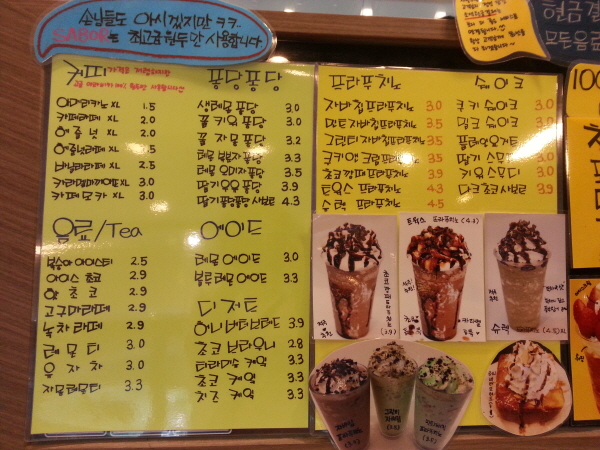 손님들도 아시겠지만 ㅋㅋ
SABOR는 최고급 원두만 사용합니다
커피
아메리카노 XL 1.5
카페라떼 XL 2.0
헤즐넛 XL 2.0
헤즐넛라떼 XL 2.5
바닐라라떼 XL 2.5
카라멜마끼아또 XL 3.0
카페모카 XL 3.0
음료/Tea
복숭아 아이스티 2.5
아이스 초코 2.9
핫 초코 2.9
고구마라떼 2.9
녹차라떼 2.9
레몬티 3.0
유자차 3.0
자몽레몬티 3.3
퐁당퐁당
생레몬 퐁당 3.0
꿀 키위 퐁당 3.0
꿀 자몽 퐁당 3.2
레몬 복분자 퐁당 3.3
레몬 오미자 퐁당 3.5
딸기유유 퐁당 3.9
딸기퐁당퐁당 사보르 4.3
에이드
레몬 에이드 3.0
블루레몬 에이드 3.3
디저트
허니버터브레드 3.9
초코 브라우니 2.8
티라미슈 케익 3.3
초코 케익 3.3
치즈 케익 3.3
프라푸치노
자바칩프라푸치노 3.0
민트자바칩프라푸치노 3.5
그린티자바칩프라푸치노 3.5
쿠키앤크림프라푸치노 3.5
초코깜떼프라푸치노 3.9
트윅스 프라푸치노 4.3
슈렉 프라푸치노 4.5
쉐이크
쿠키 쉐이크 3.0
밀크 쉐이크 3.0
플레인요거트 3.5
딸기 스무디 3.0
키위 스무디 3.0
다크초코사보르 3.5
트윅스 프라푸치노 (4.3)
(3.9)
카라멜
슈렉
현금결
모든음료
100